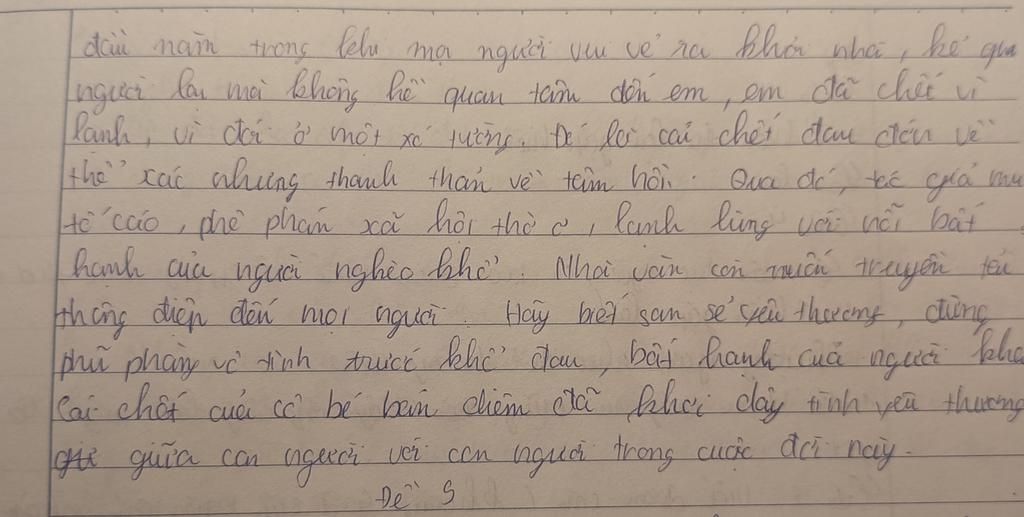 đầu năm trong khi mọi người vui vẻ ra khỏi nhà, kẻ qua
người lại mà không hề quan tâm đến em, em đã chết vì
lạnh, vì đói ở một xó tường. Đó là cái chết đau đớn về
thể xác nhưng thanh thản về tâm hồn. Qua đó, tác giả mu
tố cáo, phê phán xã hội thờ ơ, lạnh lùng với nỗi bất
hạnh của người nghèo khổ. Nhà văn còn muốn truyền tải
thông điệp đến mọi người. Hãy biết san sẻ yêu thương, đừng
phũ phàng vô tình trước khổ đau, bất hạnh của người khá
Cái chết của cô bé bán diêm đã khơi dậy tình yêu thương
giữa con người với con người trong cuộc đời này.
Đề 5